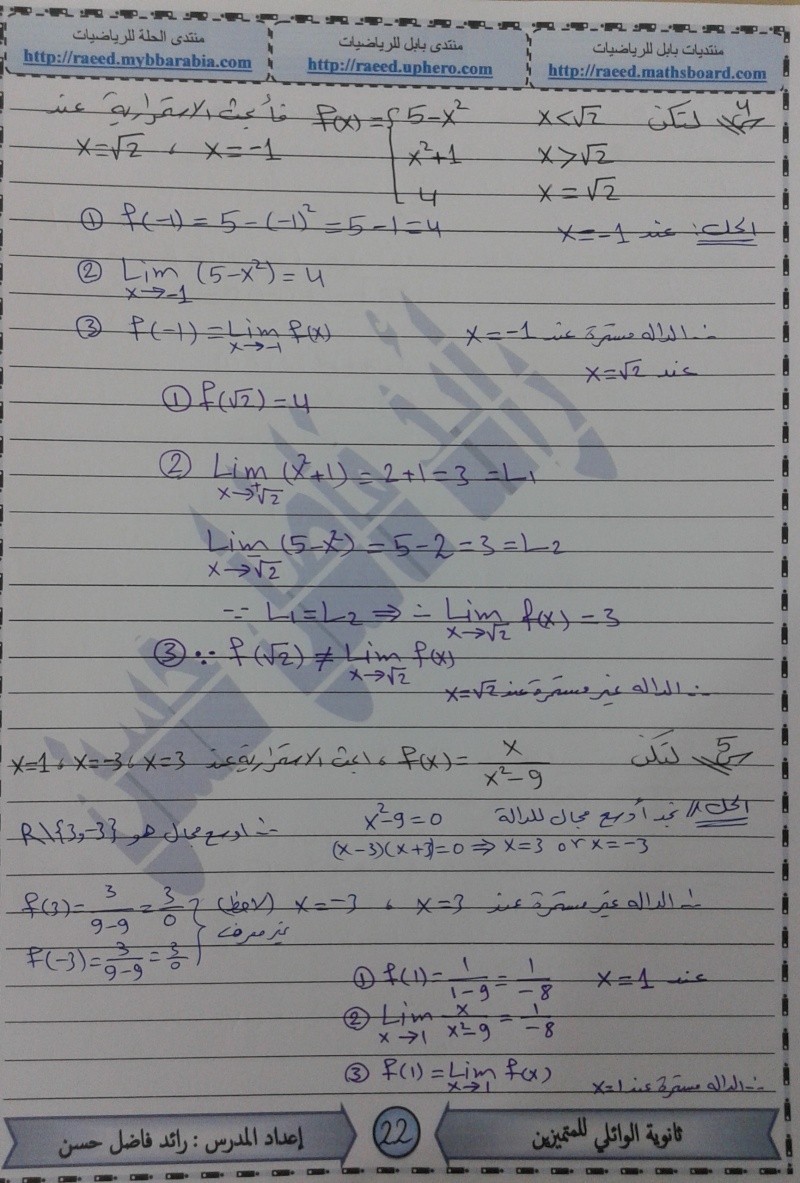 منتديات بابل للرياضيات
http://raeed.mathsboard.com
منتدى بابل للرياضيات
http://raeed.uphero.com
منتدى الحلة للرياضيات
http://raeed.mybbarabia.com
س4 لتكن f(x) = { 5-x² x<√2 فأبحث الاستمرارية عند
x²+1 x>√2 x=√2 ، x=-1
4 x=√2
الحل: عند x=-1 ① f(-1) = 5-(-1)² = 5-1 = 4
② Lim x→-1 (5-x²) = 4
③ f(-1) = Lim x→-1 f(x) ∴ الداله مستمرة عند x=-1
عند x=√2
① f(√2) = 4
② Lim x→⁺√2 (x²+1) = 2+1 = 3 = L₁
Lim x→⁻√2 (5-x²) = 5-2 = 3 = L₂
∵ L₁=L₂ ⇒ ∴ Lim x→√2 f(x) = 3
③ ∵ f(√2) ≠ Lim x→√2 f(x)
∴ الداله غير مستمرة عند x=√2
س5 لتكن f(x) = x/(x²-9) ، ابحث الاستمرارية عند x=3 ، x=-3 ، x=1
الحل// نجد أوسع مجال للدالة x²-9=0
(x-3)(x+3)=0 ⇒ x=3 or x=-3 ∴ اوسع مجال هو R\{3,-3}
∴ الداله غير مستمرة عند x=3 ، x=-3 (لاحظ) f(3) = 3/(9-9) = 3/0 }
غير معرف f(-3) = 3/(9-9) = 3/0
عند x=1 ① f(1) = 1/(1-9) = 1/-8
② Lim x→1 x/(x²-9) = 1/-8
③ f(1) = Lim x→1 f(x) ∴ الداله مستمرة عند x=1
ثانوية الوائلي للمتميزين
22
إعداد المدرس : رائد فاضل حسن
رائد فاضل حسن